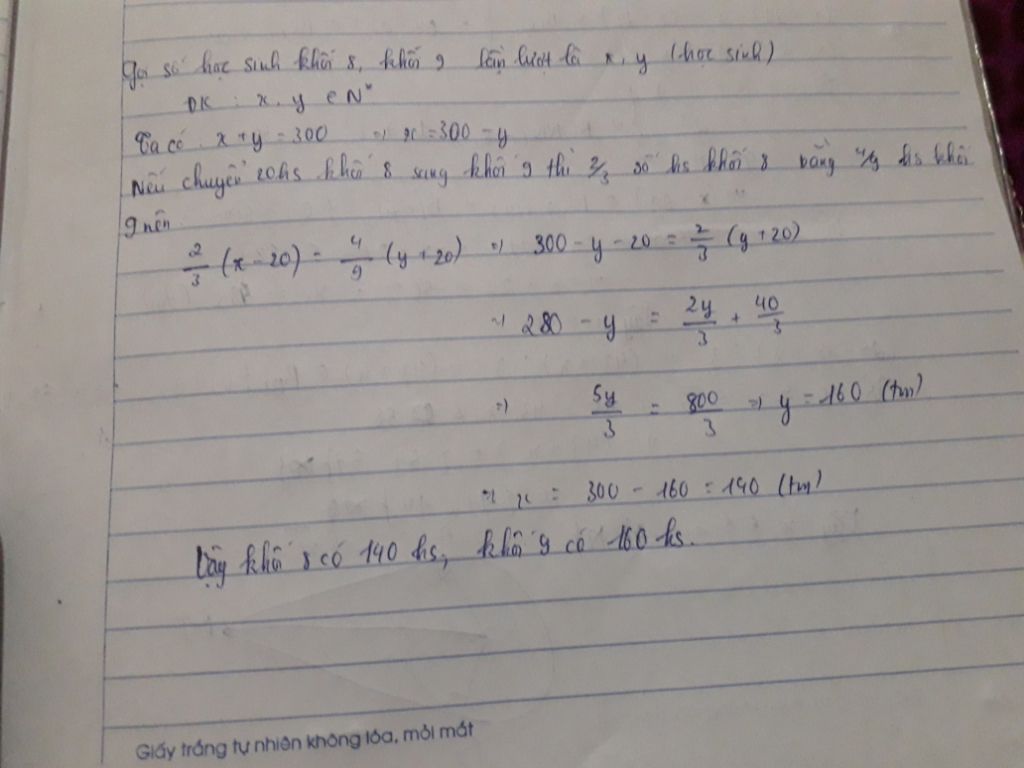 Gọi số học sinh khối 8, khối 9 lần lượt là x, y (học sinh)
ĐK : x, y ∈ N*
Ta có x + y = 300 => x = 300 - y
Nếu chuyển 20hs khối 8 sang khối 9 thì 2/3 số hs khối 8 bằng 4/9 hs khối
9 nên
2/3 (x - 20) = 4/9 (y + 20) => 300 - y - 20 = 2/3 (y + 20)
=> 280 - y = 2y/3 + 40/3
=> 5y/3 = 800/3 => y = 160 (tm)
=> x = 300 - 160 = 140 (tm)
Vậy khối 8 có 140 hs, khối 9 có 160 hs.
Giấy trắng tự nhiên không lóa, mỏi mắt